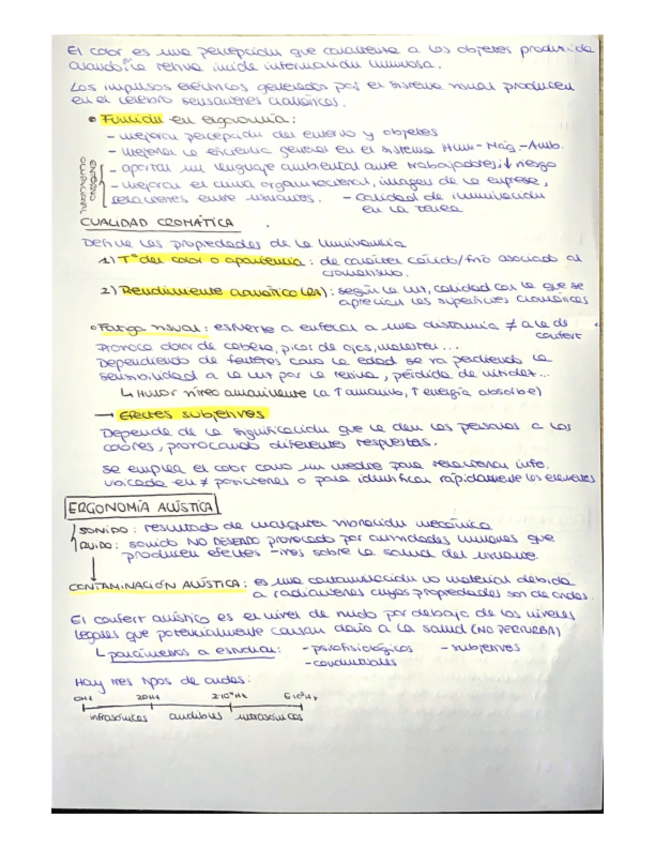 El color es una percepción que caracteriza a los objetos producida
cuando en la retina incide información luminosa.
Los impulsos eléctricos generados por el sistema visual producen
en el cerebro sensaciones cromáticas.
• Función en ergonomía:
- mejorar percepción del entorno y objetos
- mejorar la eficiencia general en el sistema Hum-Máq-Amb.
- aportar un lenguaje ambiental ante trabajadores; ↓ riesgo
- mejorar el clima organizacional, imagen de la empresa,
relaciones entre usuarios. - calidad de iluminación
en la tarea
ENTORNO
CUALIDAD CROMÁTICA
Define las propiedades de la luminancia
1) Tª del color o apariencia: de carácter cálido/frío asociado al
cromatismo.
2) Rendimiento cromático (CR): según la luz, calidad con la que se
aprecian las superficies cromáticas
• Fatiga visual: esfuerzo a enfocar a una distancia ≠ a la de
confort
Provoca dolor de cabeza, picor de ojos, malestar...
Dependiendo de factores como la edad se va perdiendo la
sensibilidad a la luz por la retina, pérdida de nitidez...
↳ Humor vítreo amarillento (a ↑ amarillo, ↑ energía absorbe)
→ Efectos subjetivos
Depende de la significación que le den las personas a los
colores, provocando diferentes respuestas.
Se emplea el color como un medio para relacionar info.
ubicada en ≠ posiciones o para identificar rápidamente los elementos
ERGONOMÍA ACÚSTICA
SONIDO: resultado de cualquier vibración mecánica
RUIDO: sonido NO DESEADO provocado por actividades humanas que
producen efectos -ivos sobre la salud del usuario.
CONTAMINACIÓN ACÚSTICA: es una contaminación no material debida
a radiaciones cuyas propiedades son de ondas.
El confort acústico es el nivel de ruido por debajo de los niveles
legales que potencialmente causan daño a la salud (NO PERTURBA)
↳ parámetros a estudiar: - psicofisiológicos - subjetivos
- conductuales
Hay tres tipos de ondas:
0Hz 20Hz 2·10⁴Hz
infrasónicas audibles ultrasónicas